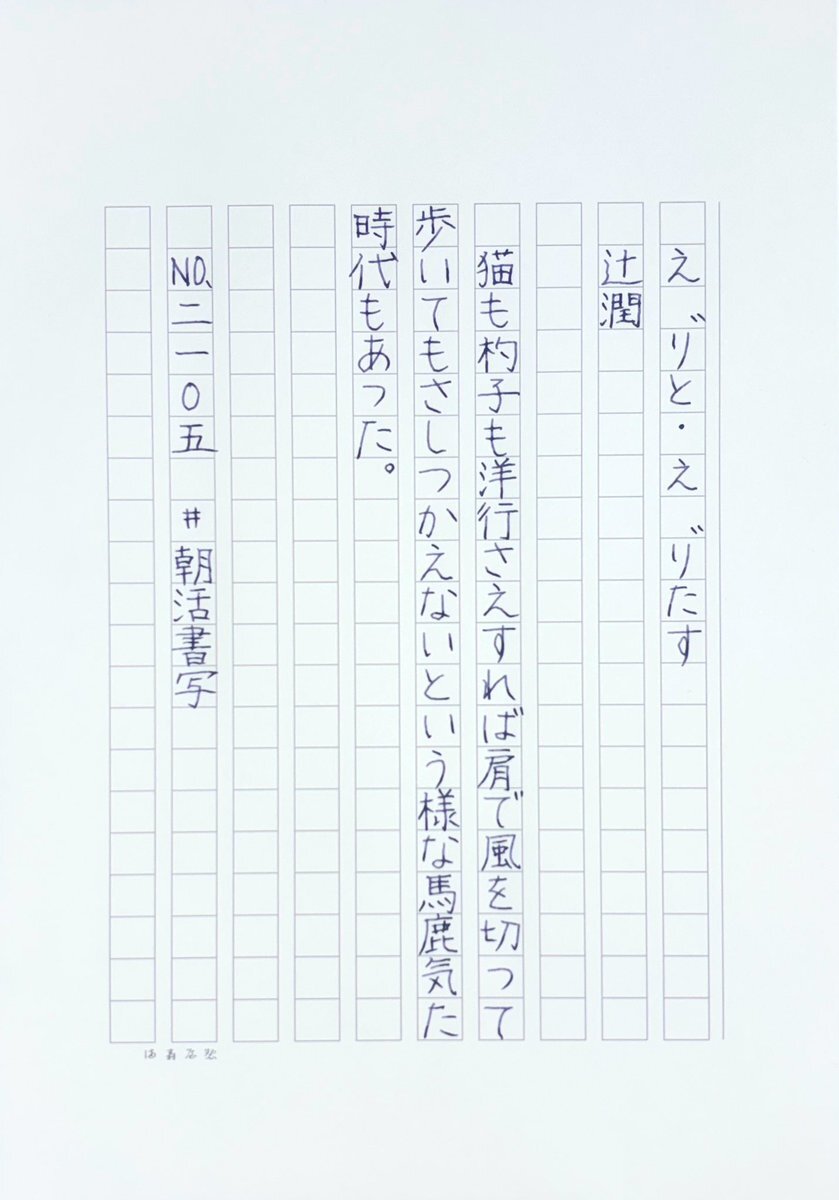 え゛りと・え゛りたす
辻潤
猫も杓子も洋行さえすれば肩で風を切つて
歩いてもさしつかえないという様な馬鹿気た
時代もあつた。
NO.二一〇五 #朝活書写